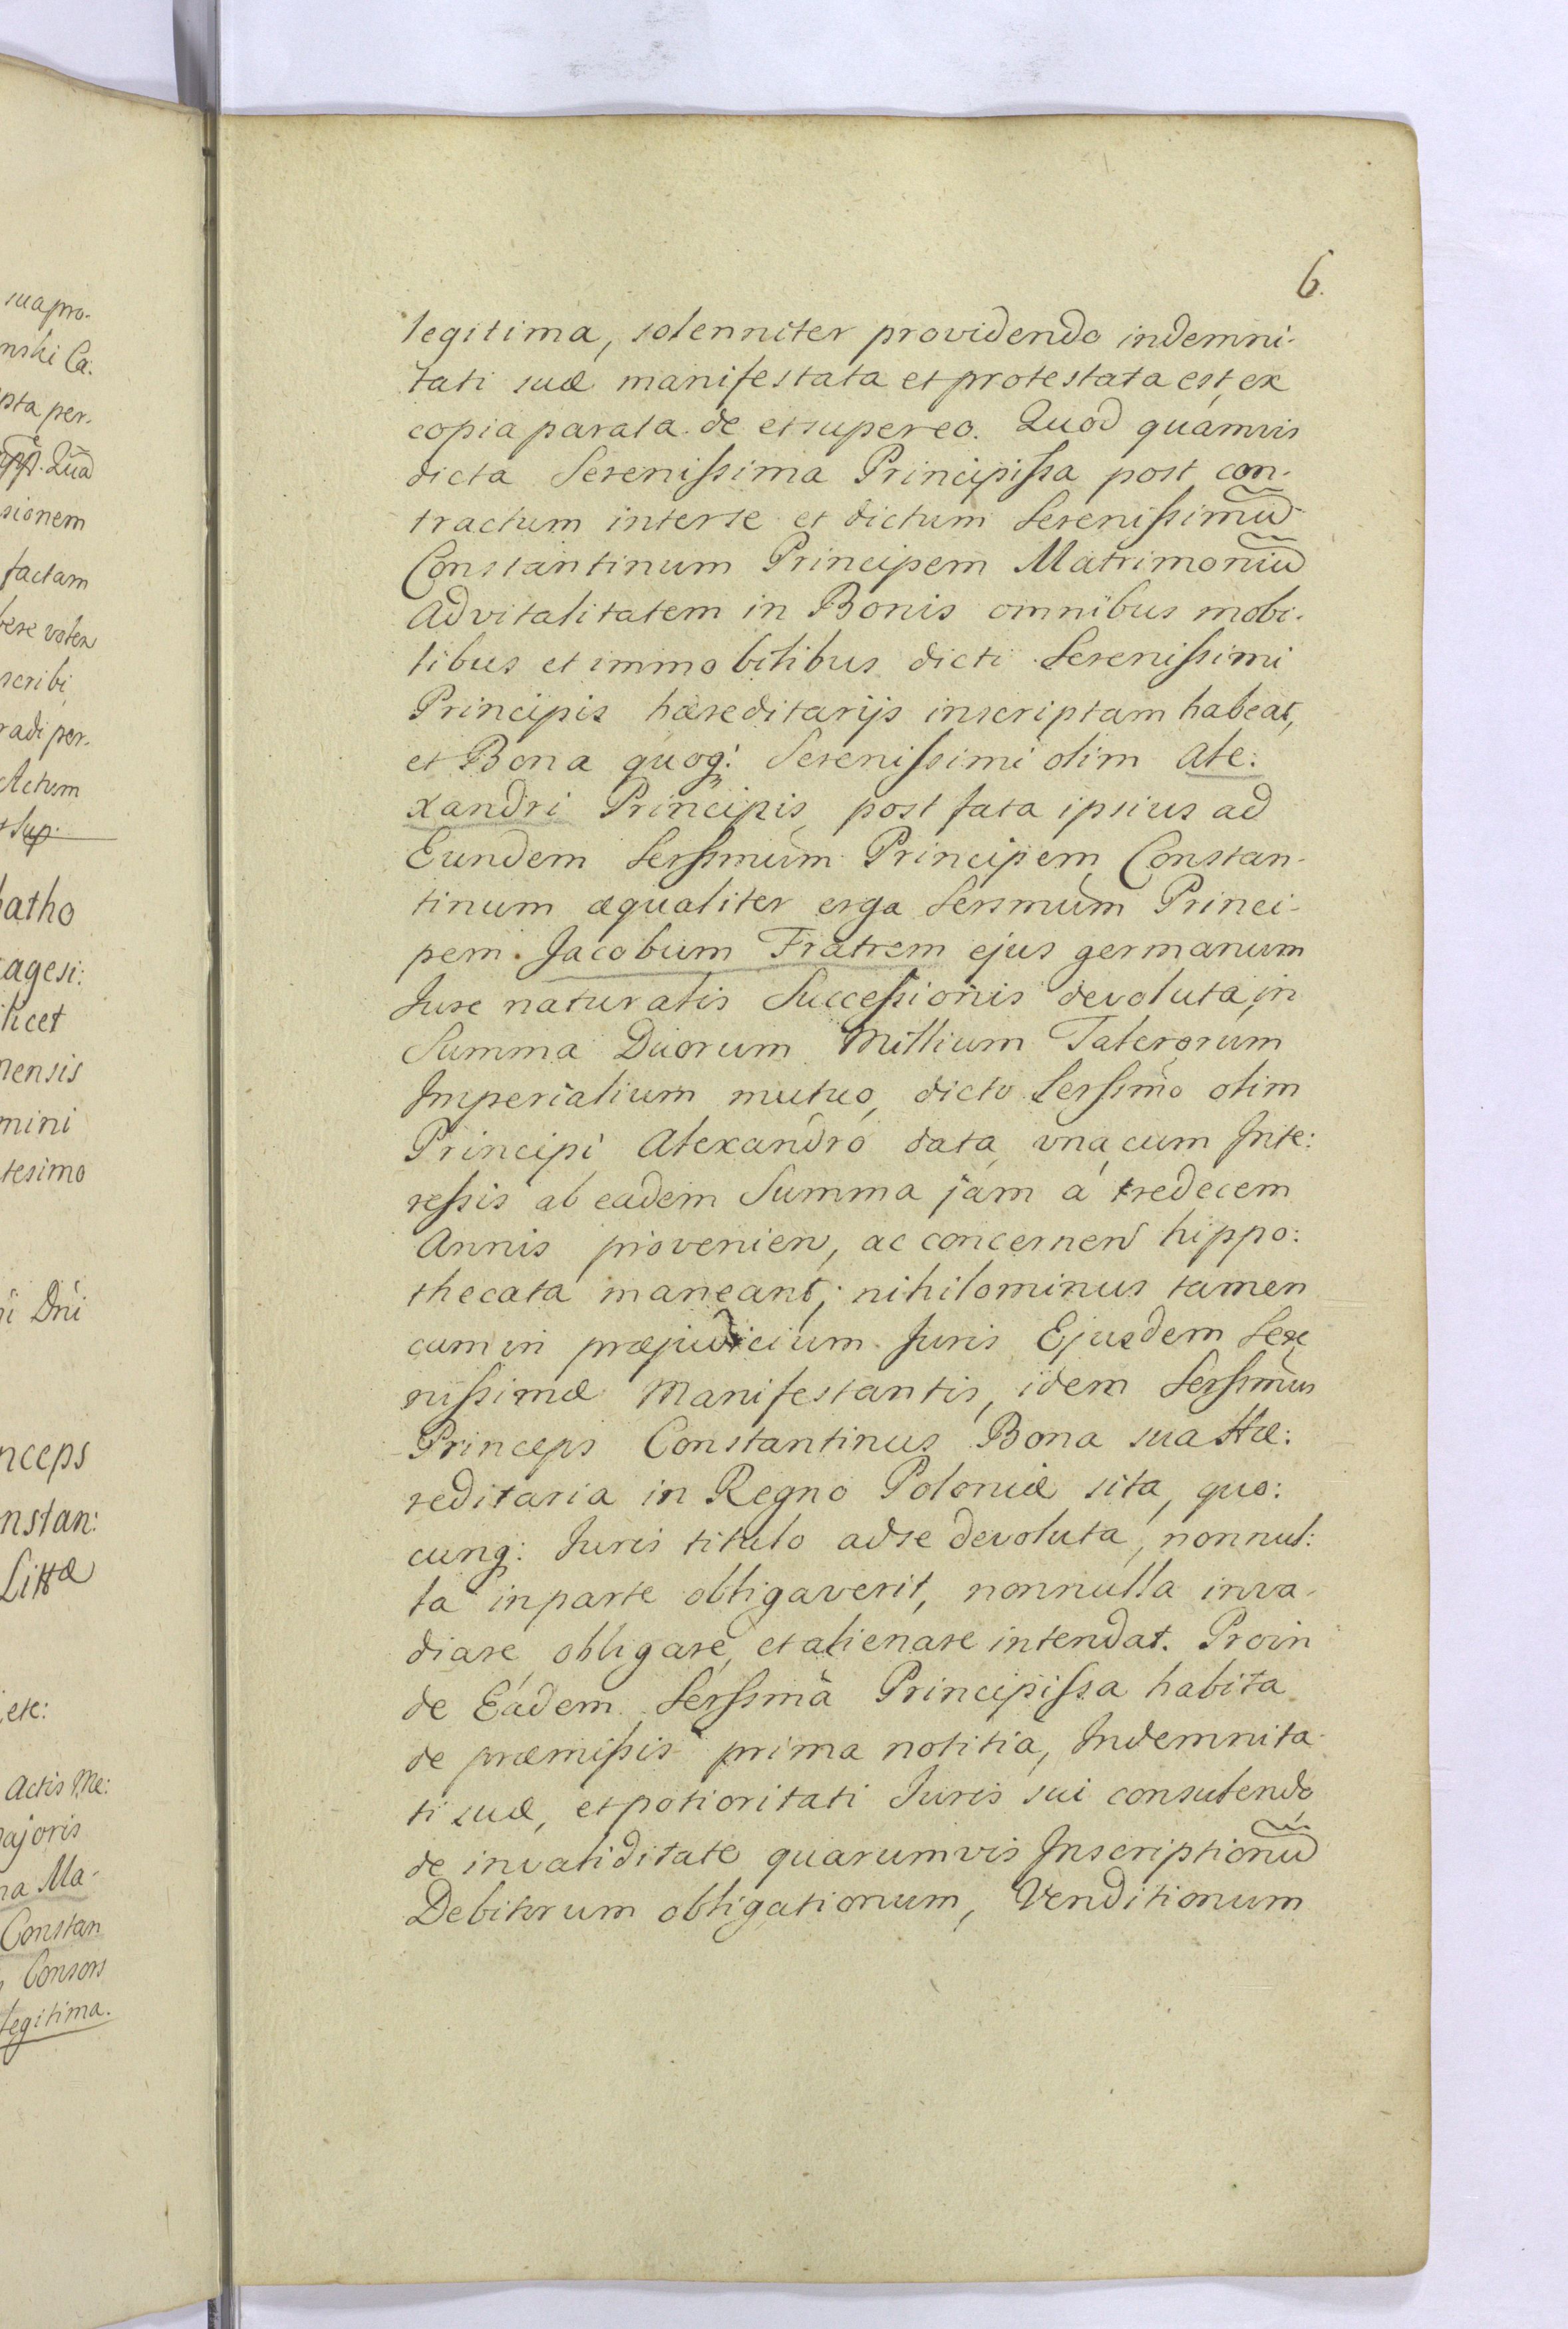 suapro.
nski Ca:
pta per.
Quod
sionem
factam
bere volen
scribi
radi per.
Actum
Sup.
batho
cagesi:
licet
nensis
mini
tesimo
Dni
nceps
nstan:
Littæ
, etc:
Actis Me:
ajoris
na Ma-
Constan
, Consors
legitima.
6.
legitima, solenniter providendo indemni-
tati suæ manifestata et protestata est, ex
copia parata de et super eo. Quod quamvis
dicta Serenissima Principissa post con-
tractum interse et dictum Serenissimũ
Constantinum Principem Matrimoniũ
advitalitatem in Bonis omnibus mobi-
libus et immobilibus dicti Serenissimi
Principis hæreditarijs inscriptam habeat,
et Bona quoq: Serenissimi olim Ale:
xandri Principis, post fata ipsius ad
Eundem Serssimum Principem Constan-
tinum æqualiter erga Sersmum Princi-
pem Jacobum Fratrem ejus germanum
Jure naturalis Successionis devoluta, in
Summa Duorum Millium Talerorum
Imperialium mutuo, dicto Serssimo olim
Principi Alexandro data, una cum Inte:
ressis ab eadem Summa jam á tredecem
Annis provenien, ac concernen hippo:
thecata maneant; nihilominus tamen
cum in præjudicium Juris Ejusdem Sere
nissimæ Manifestantis, idem Serssimus
Princeps Constantinus Bona sua Hæ:
reditaria in Regno Poloniæ sita, quo:
cunq: Juris titulo adse devoluta, nonnul:
la inparte obligaverit, nonnulla inva-
diare, obligare, et alienare intendat. Proin
de Eadem Serssima Principissa habita
de præmissis prima notitia, Indemnita-
ti suæ, et potioritati Juris sui consulendo
de invaliditate quarumvis Inscriptionũ
Debitorum obligationum, Venditionum